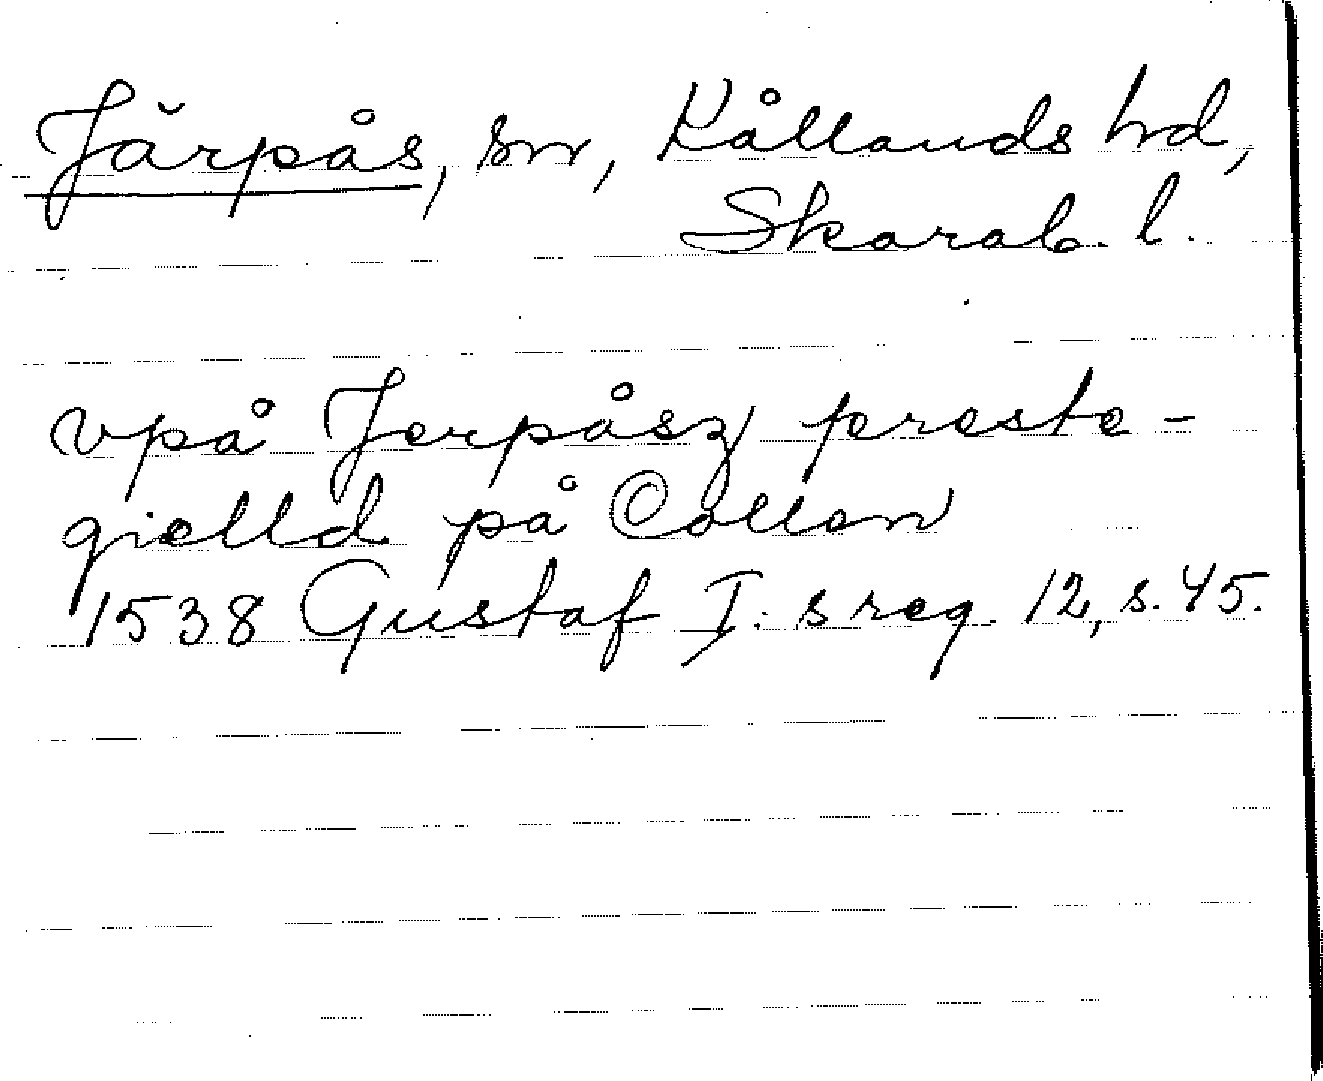 Järpås, sn, Kållands hd,
Skarab. l.
vpå Jerpåsz preste-
gielld på Collen
1538 Gustaf I:s reg. 12, s. 45.